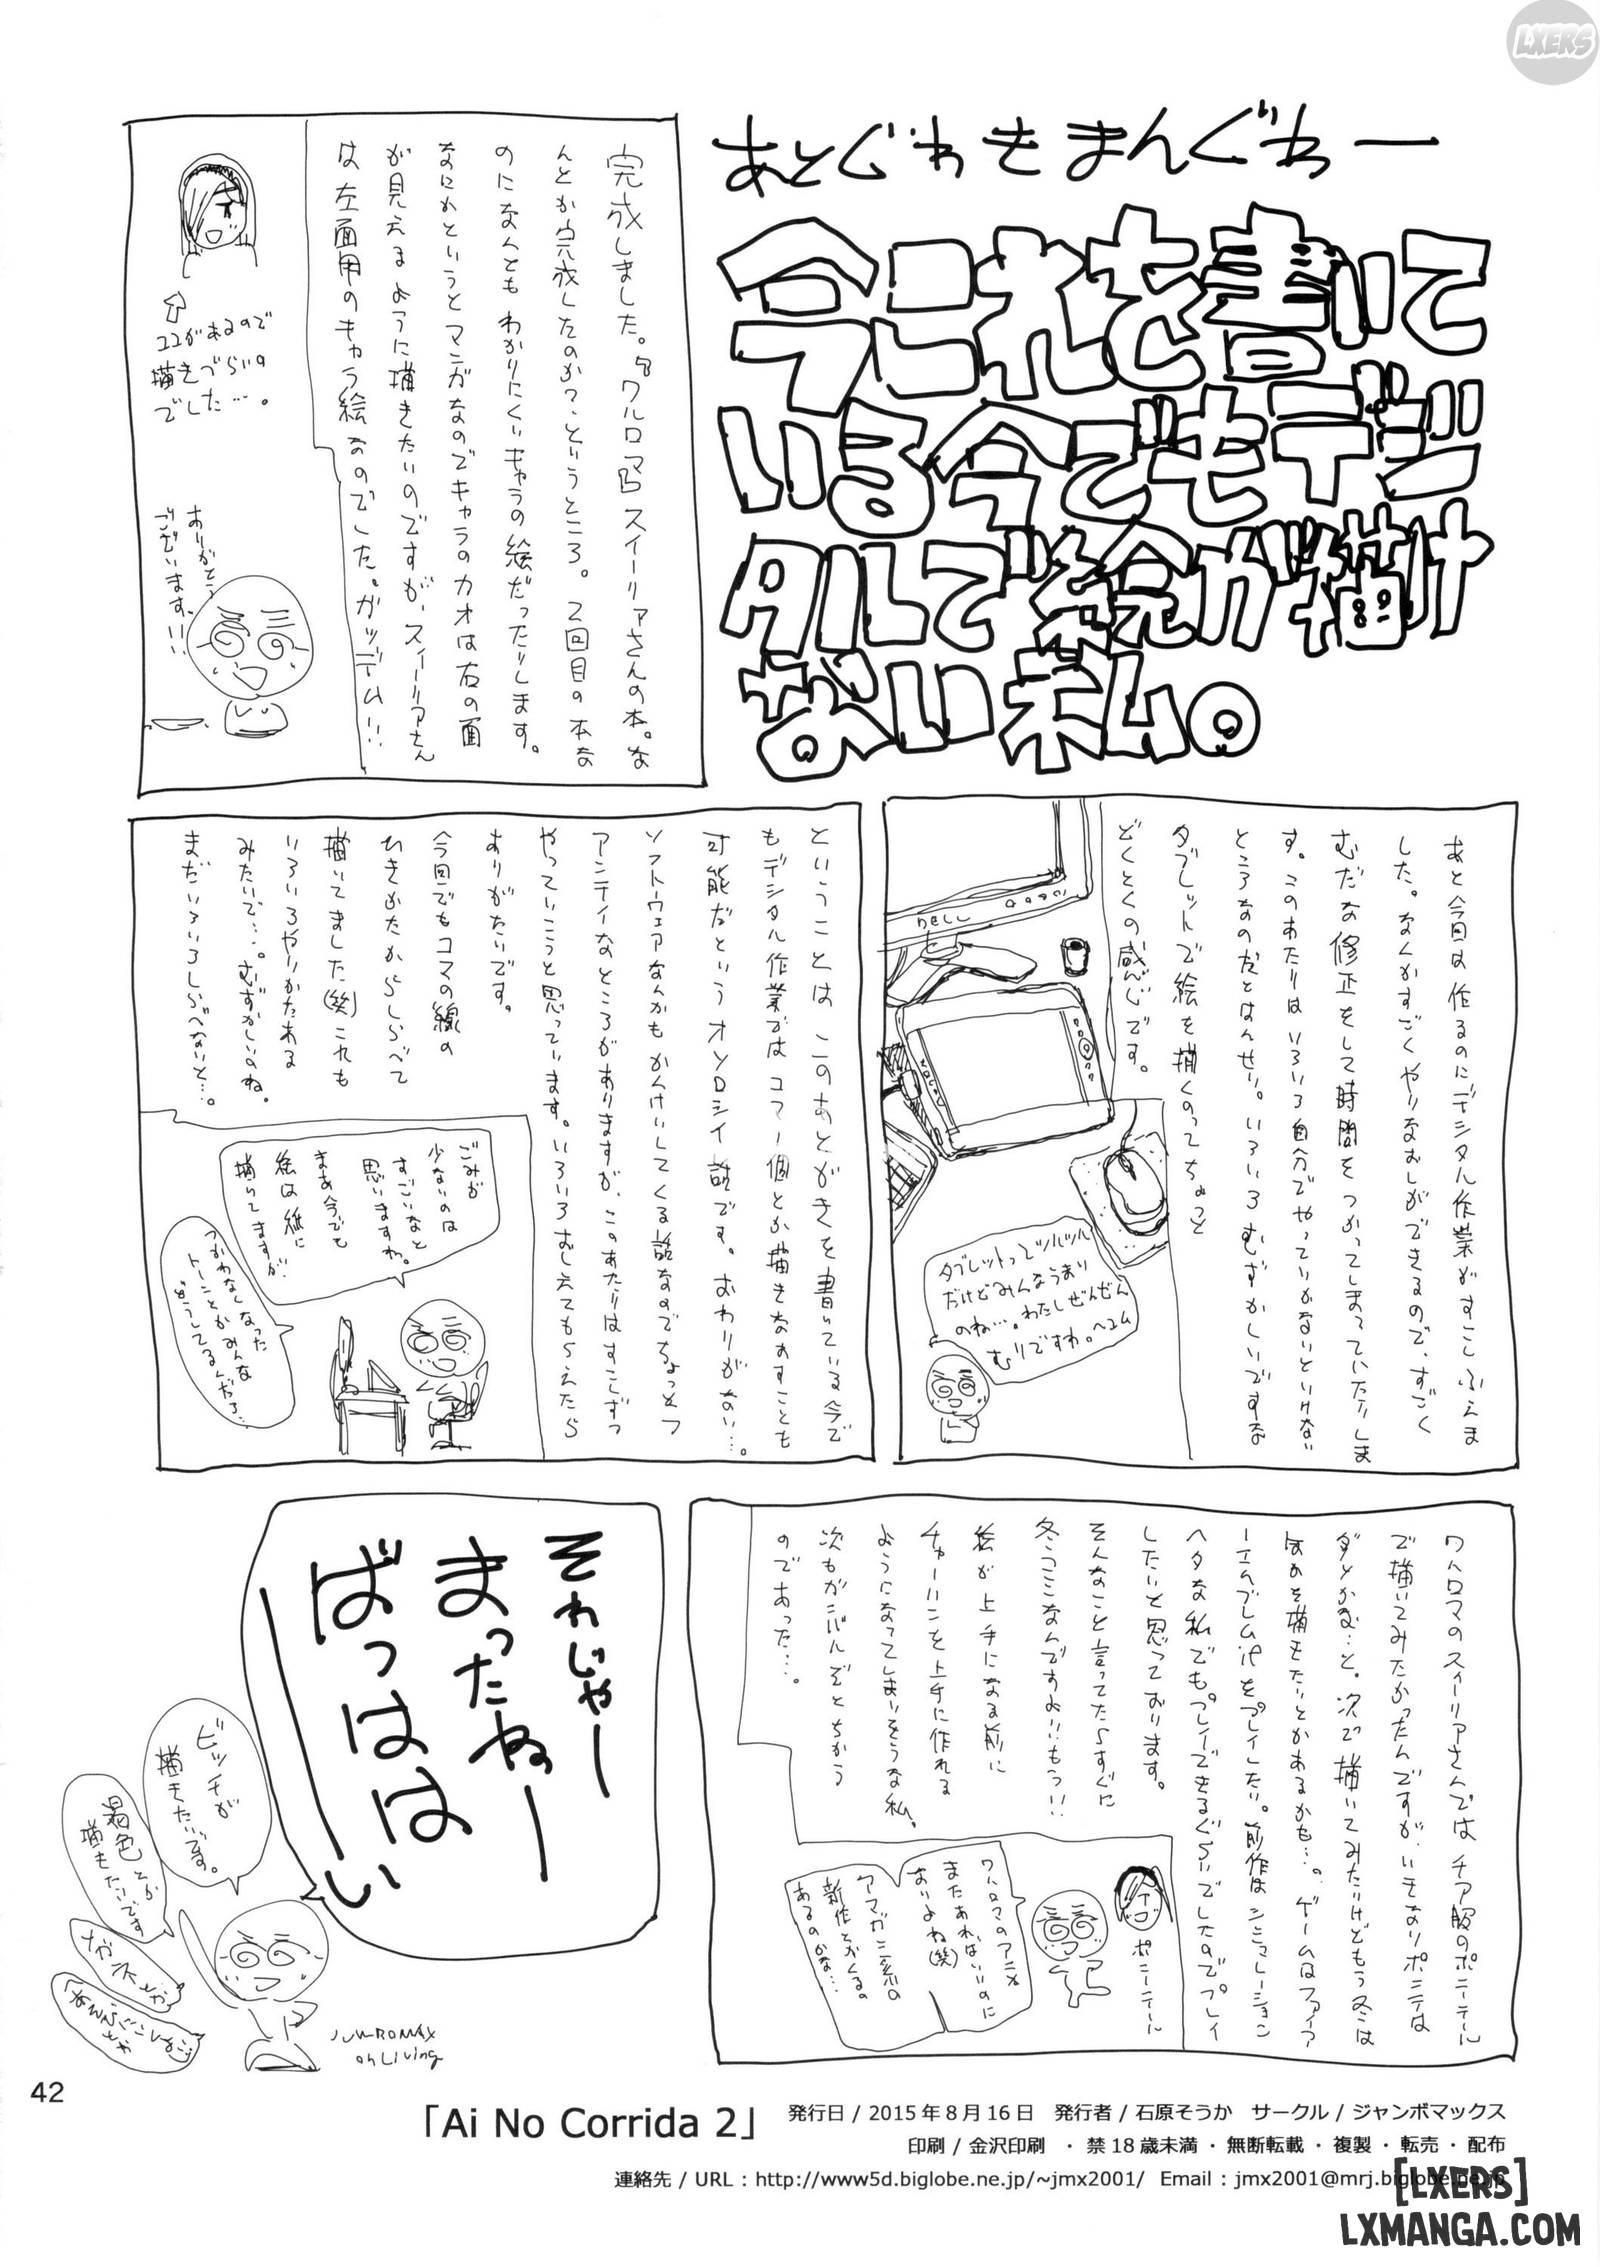 LXERS
あとぐわきまんぐわー
今これを書いて
いる今でもデジ
タルで絵が描け
ない私。
完成しました。『ワルロマ』スイーリアさんの本。な
んとか完成したのか?というところ。2回目の本な
のになんとも わかりにくいキャラの絵だったりします。
なにかというとマンガなのでキャラのカオは右の面
が見えるように描きたいのですが、スイーリアさん
は左面用のキャラ絵なのでした。ガッデム!!
ココがあるので
描きづらいの
でした…。
ありがとう
ございます!!
あと今回は作るのにデジタル作業がすこしふえま
した。なんかすごくやりなおしができるので、すごく
むだな修正をして時間をつかってしまっていたりしま
す。このあたりはいろいろ自分でやっていかないといけない
ところなのだとはんせい。いろいろむずかしいですな
タブレットで絵を描くのってちょっと
どくとくの感じです。
DELL
タブレットってツルツル
だけどみんなうまい
のね…。わたしぜんぜん
むりですわ。ヘコム
ということは このあとがきを書いている今で
もデジタル作業ではコマ一個とか描きなおすことも
可能だというオソロシイ話です。おわりがない…。
ソフトウェアなんかもかんけいしてくる話なのでちょっとつ
アンティなところがありますが、このあたりはすこしずつ
やっていこうと思っています。いろいろおしえてもらえたら
ありがたいです。
今回でもコマの線の
ひきかたからしらべて
描いてました(笑)これも
いろいろやりかたある
みたいで…。むずかしいのね。
まだいろいろしらべないと…。
ごみが
少ないのは
すごいなと
思いますわ。
まあ今でも
絵は紙に
描いてますが
つかわなくなった
トーンとかみんな
どうしてるんだろ…
ワルロマのスイーリアさんではチア服のポニーテール
で描いてみたかったんですが、いきなりポニテは
ダメかな…と。次で描いてみたいけどもう冬は
べつのを描きたいとかあるかも…。ゲームはファイア
ーエムブレムifをプレイしたい。前作はシミュレーション
ヘタな私でもプレイできるぐらいでしたのでプレイ
したいと思っております。
そんなこと言ってたらすぐに
冬コミなんですよ!!もう!!
絵が上手になる前に
チャーハンを上手に作れる
ようになってしまいそうな私、
次もガンバルぞとちかう
のであった…。
ポニーテール
ワルロマのアニメ
またあればいいのに
ないよね(笑)
アマガミ系の
新作とかくるの
あるのかな…
それじゃー
まったねー
ばっははーい
ビッチが
描きたいです。
褐色とか
描きたいです
メガネとか
JUMBOMAX
on Living
42
「Ai No Corrida 2」 発行日 / 2015年8月16日 発行者 / 石原そうか サークル / ジャンボマックス
印刷 / 金沢印刷 ・禁18歳未満・無断転載・複製・転売・配布
連絡先 / URL : http://www5d.biglobe.ne.jp/~jmx2001/ Email : jmx2001@mrj.biglobe.ne.jp
[LXERS]
LXMANGA.COM